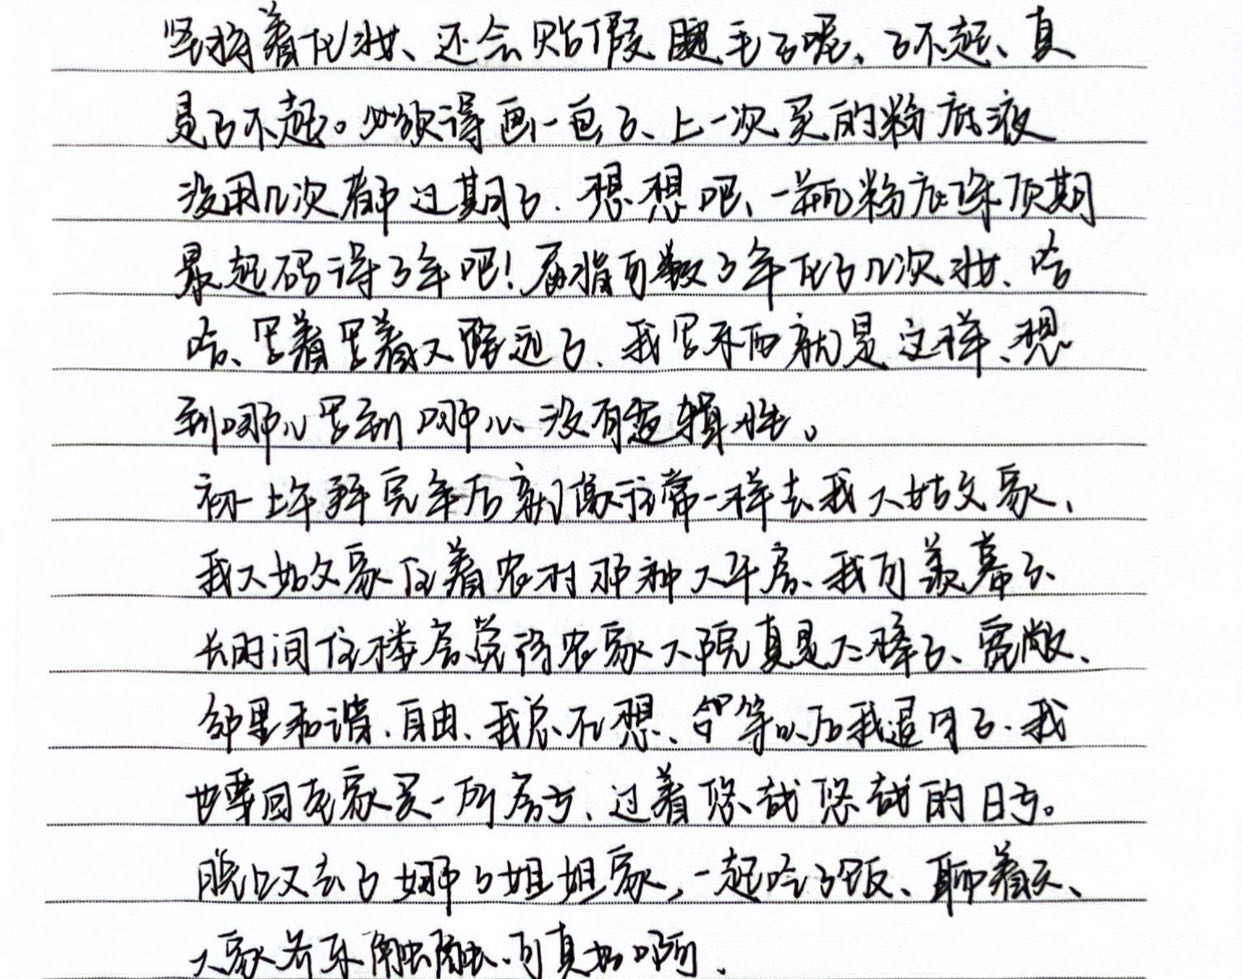 坚持着化妆、还会贴假睫毛了呢、了不起、真
是了不起。必须得画一画了、上一次买的粉底液
没用几次都过期了. 想想吧、一瓶粉底保质期
最起码得3年吧！屈指可数3年化了几次妆、哈
哈、写着写着又跑远了、我写东西就是这样、想
到哪儿写到哪儿、没有逻辑性。
初一上午拜完年后就像往常一样去我大姑父家、
我大姑父家住着农村那种大平房、我可羡慕了、
长时间住楼房觉得农家大院真是太棒了、宽敞、
邻里和谐、自由、我总在想、等以后我退休了、我
也要回老家买一所房子、过着悠哉悠哉的日子。
晚上又去了娜娜姐姐家，一起吃了饭、聊着天、
大家其乐融融、可真好啊.